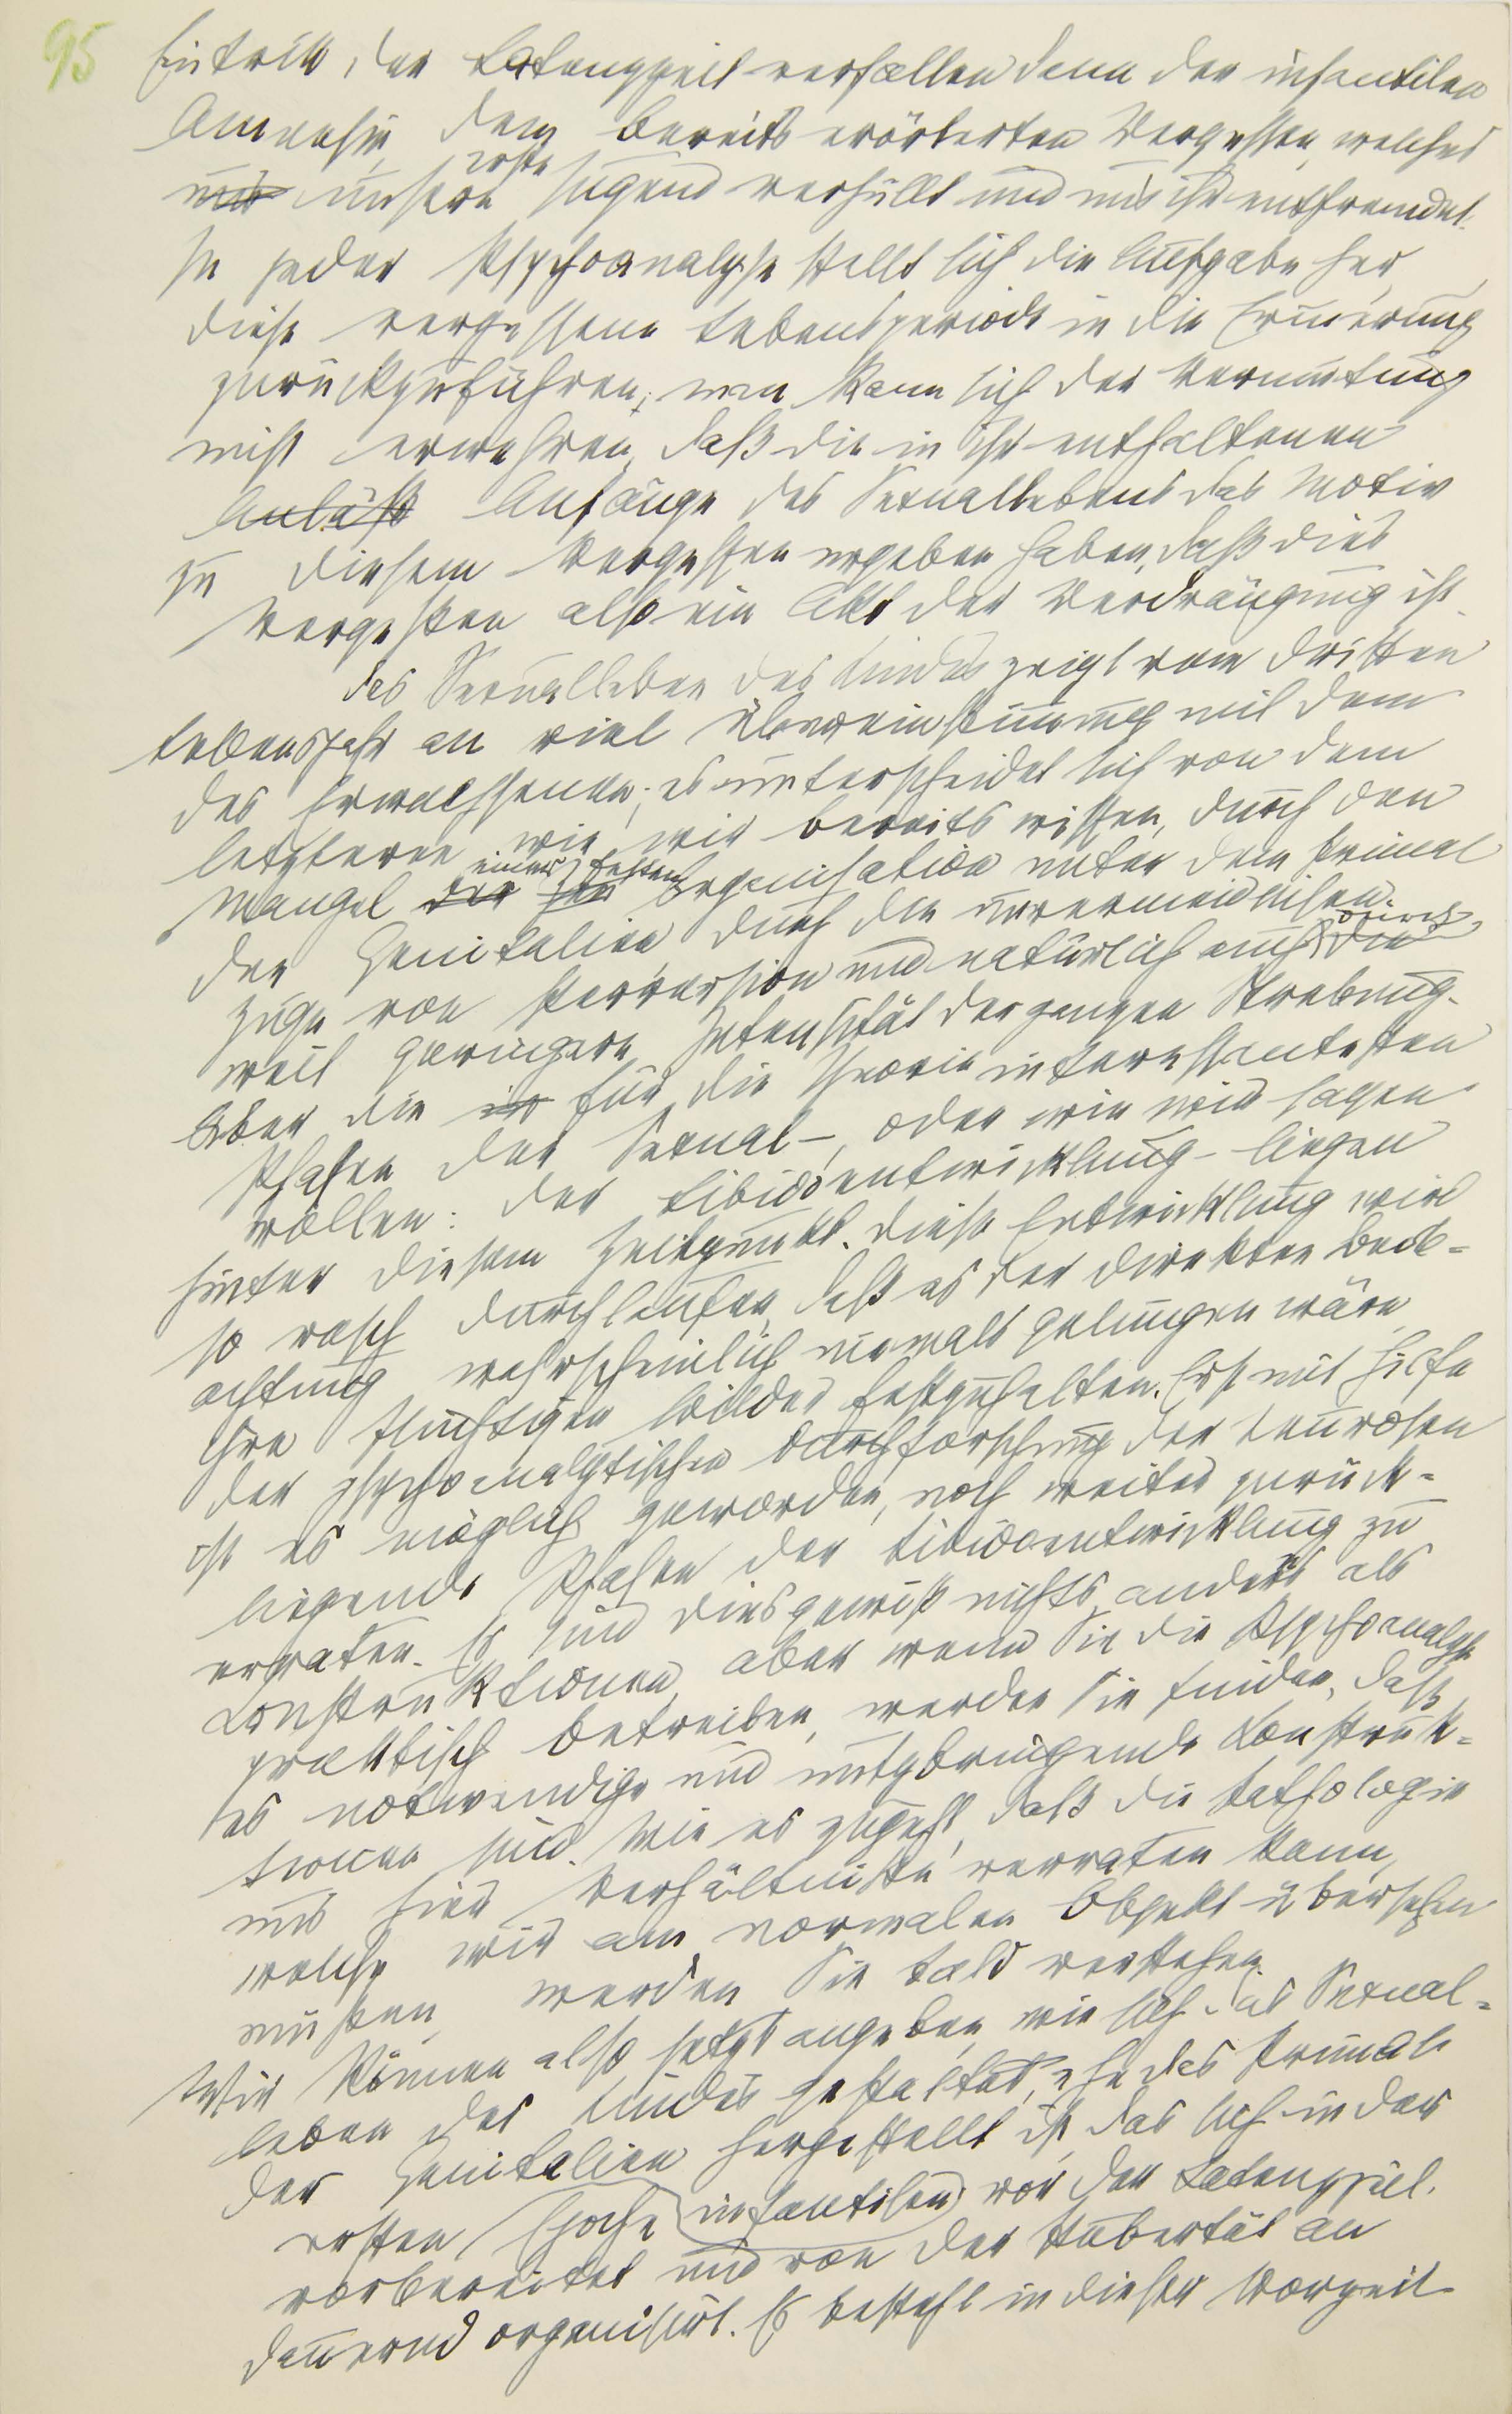 95
Eintritt der Latenzzeit verfallen dann der infantilen
Amnesie, dem bereits erörterten Vergessen, welches
uns unsere erste Jugend verhüllt und uns ihr entfremdet.
In jeder Psychoanalyse stellt sich die Aufgabe her,
diese vergessene Lebensperiode in die Erinnerung
zurückzuführen; man kann sich der Vermutung
nicht erwehren, daß die in ihr enthaltenen
Anläße Anfänge des Sexuallebens das Motiv
zu diesem Vergessen ergeben haben, daß dies
Vergessen also ein Akt der Verdrängung ist.
Das Sexualleben des Kindes zeigt vom dritten
Lebensjahr an viel Übereinstimmung mit dem
des Erwachsenen; es unterscheidet sich von dem
letzteren, wie wir bereits wissen, durch den
Mangel der einer festen Organisation unter dem Primat
der Genitalien, durch die unvermeidlichen
Züge von Perversion und natürlich auch durch die
weit geringere Intensität der ganzen Strebung.
Aber die in für die Theorie interessantesten
Phasen der Sexual-, oder wie wir sagen
wollen: der Libidoentwicklung – liegen
hinter diesem Zeitpunkt. Diese Entwicklung wird
so rasch durchlaufen, daß es der direkten Beob=
achtung wahrscheinlich niemals gelungen wäre,
ihre flüchtigen Bilder festzuhalten. Erst mit Hilfe
der psychoanalytischen Durchforschung der Neurosen
ist es möglich geworden, noch weiter zurück=
liegende Phasen der Libidoentwicklung zu
erraten. Es sind dies gewiß nichts anderes als
Construktionen, aber wenn Sie die Psychoanalyse
praktisch betreiben, werden Sie finden, daß
es notwendige und nutzbringende Konstruk=
tionen sind. Wie es zugeht, daß die Pathologie
uns hier Verhältnisse verraten kann,
welche wir am normalen Objekt übersehen
müssen, werden Sie bald verstehen.
Wir können also jetzt angeben, wie sich das Sexual=
leben des Kindes gestaltet, ehe das Primat
der Genitalien hergestellt ist, das sich in der
ersten Epoche infantilen vor der Latenzzeit
vorbereitet und von der Pubertät an
dauernd organisirt. Es besteht in dieser Vorzeit